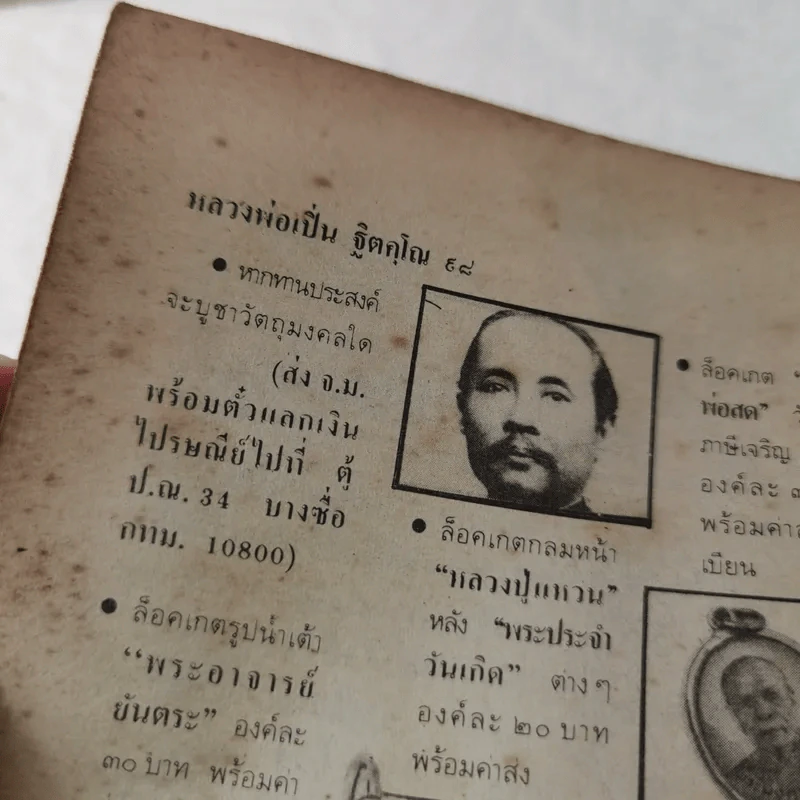 หลวงพ่อเปิ่น ฐิตคุโณ ๙๘
● หากทานประสงค์
จะบูชาวัตถุมงคลใด
(ส่ง จ.ม.
พร้อมตั๋วแลกเงิน
ไปรษณีย์ไปที่ ตู้
ป.ณ. 34 บางซื่อ
กทม. 10800)
● ล็อคเกตรูปน้ำเต้า
“พระอาจารย์
ยันตระ” องค์ละ
๓๐ บาท พร้อมค่า
● ล็อคเกตกลมหน้า
“หลวงปู่แหวน”
หลัง “พระประจำ
วันเกิด” ต่างๆ
องค์ละ ๒๐ บาท
พร้อมค่าส่ง
● ล็อคเกต “
พ่อสด”
ภาษีเจริญ
องค์ละ
พร้อมค่า
เบียน